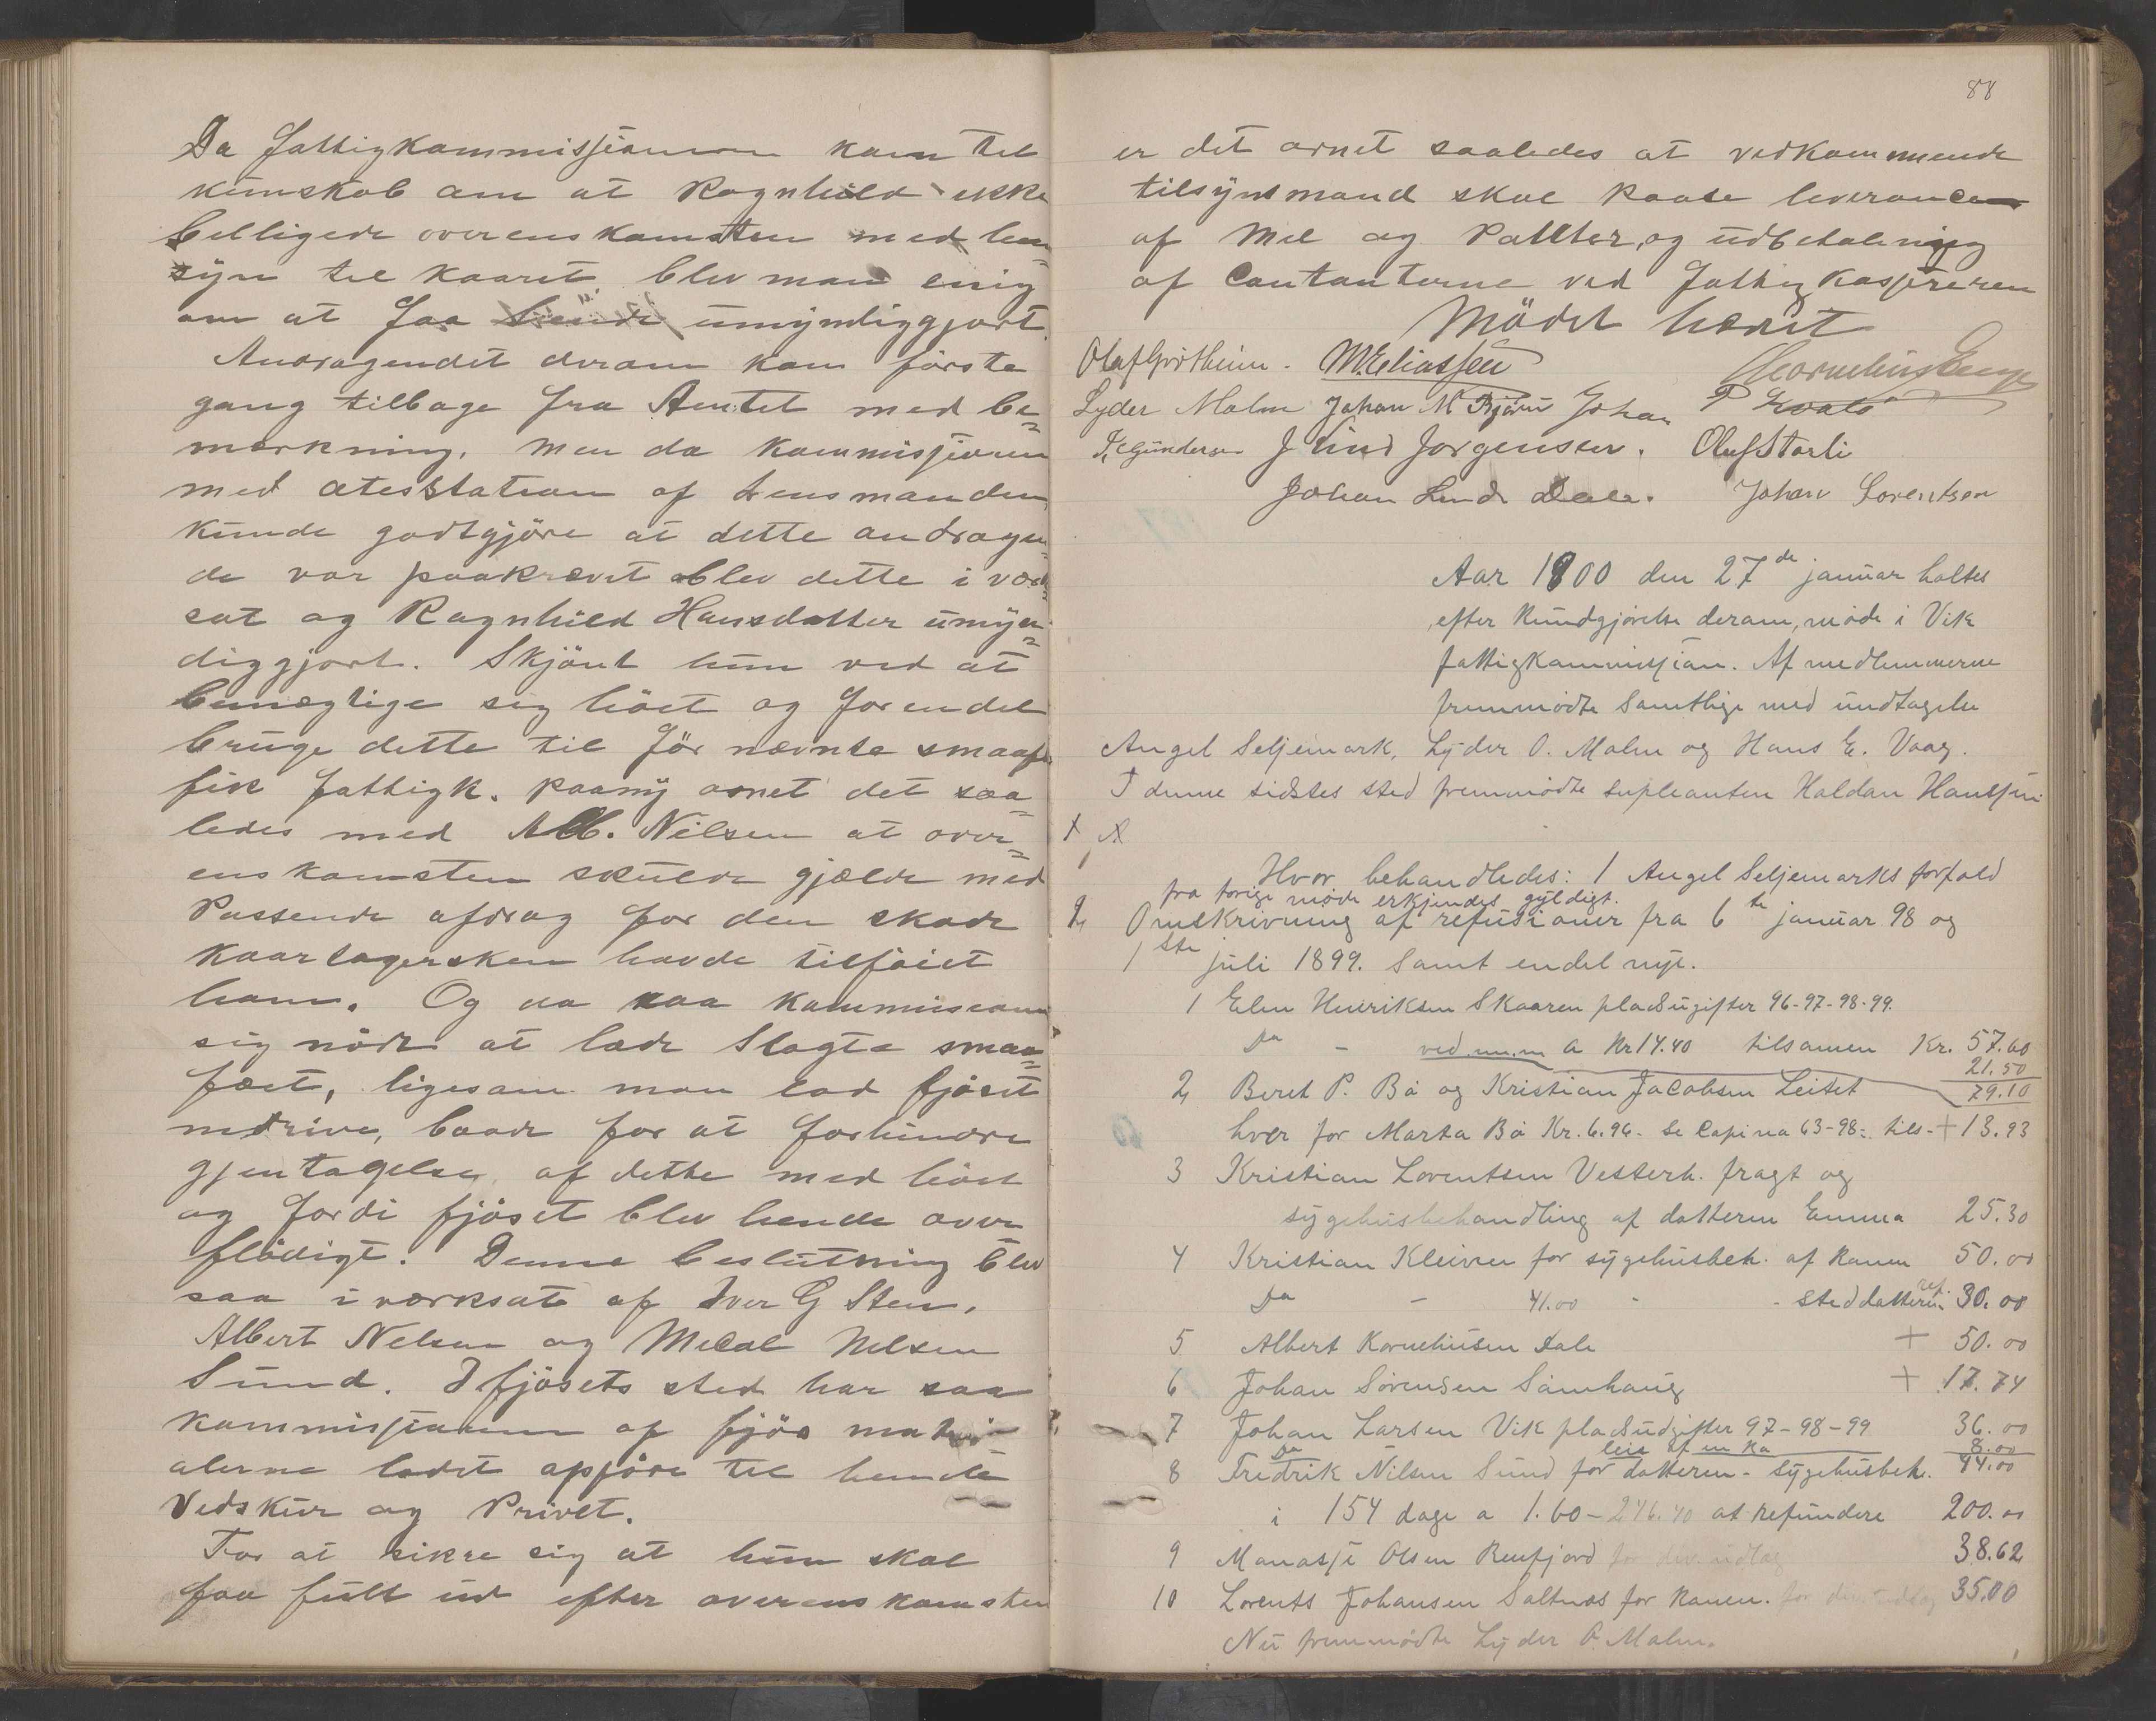 Da Fattigkommissjonen kom til
kunskab om at Ragnhild ikke
belligede overenskomsten med hen-
syn til kaaret, blev man enig
om at faa hende umyndiggjort.
Andragendet derom kom første
gang tilbage fra Amtet med be=
merkning, men da kommissjonen
med atesstation af Lensmanden
kunde godtgjöre at dette andragen=
de var paakrævet blev dette i værk=
sat og Ragnhild Hansdatter umyn=
diggjort. Skjönt hun ved at
bemægtige sig höet og forendel
bruge dette til för nævnte smaafe
fik fattigk. paany ornet det saa=
ledes med Alb. Nilsen at over=
enskomsten skulde gjælde med
Passende afdrag for den skade
kaartagersken havde tilföiet
ham. Og da saa kommissionen
sig nödt at lade Slagte smaa=
fæet, ligesom man lod fjöset
nedrive, baade for at forhindre
gjentagelse af dette med höet
og fordi fjöset blev hende over
flödigt. Denne beslutning blev
saa iværksat af Iver G Sten,
Albert Nelsen og Mikal Nelsen
Sund. I fjösets sted har saa
kommissionen af fjös materi-
alerne ladet opföre til hende
Vedskur og Privet.
For at sikre sig at hun skal
faa fuldt ud efter overenskomsten
88
er det ornet saaledes at vedkommende
tilsynsmand skal paase leverancen
af Mel og Potteter, og udbetaling
af Contanterne ved Fattigkasséreren
Mödet hævet
Olaf Grötheim. M. Eliassen Cornelius Enge
Lyder Malm Johan M Johan P
Gundersen J Lind Jorgensen. Oluf Storli
Johan Lund Dale. Johan Lorentsen
Aar 1900 den 27de januar holtes
efter Kundgjörelse derom, möde i Vik
fattigkommissjon. Af medlemmerne
fremmödte Samtlige med undtagelse
Angel Seljemark, Lyder O. Malm og Hans E. Vaag.
I denne sidstes sted fremmödte supleanten Haldan Hanssen
Hvor behandledes: 1 Angel Seljemarks forfald
fra forige möde erkjendes gyldigt.
2, Omskrivning af refusioner fra 6te januar 98 og
1ste juli 1899. Samt endel nye.
1 Elen Henriksen Skaaren pladsugifter 96-97-98-99.
Da - ved m.m a Kr 14.40 tilsamen Kr. 57.60
21.50
2, Beret P. Bö og Kristian Jacobsen Leitet 79.10
hver for Marta Bö Kr. 6.96. Se Copi na 63-98- tils - + 13.93
3 Kristian Lorentsen Vesterh. fragt og
sygehusbehandling af datteren Emma 25.30
4 Kristian Kleiven for sygehusbeh. af Konen 50.00
Da - 41.00 - - steddatteren. ref. 30.00
5 Albert Korneliusen Dale + 50.00
6 Johan Sörensen Sömhaug + 17.74
7 Johan Larsen Vik pladsudgifter 97-98-99 36.00
Da leie af en Ko 8.00
8 Fredrik Nilsen Sund for datteren - sygehusbeh. 44.00
i 154 dage a 1.60 - 246.40 at refundere 200.00
9 Manasse Olsen Renfjord for div. udlæg 38.62
10 Lorents Johansen Saltnes for Konen. for div. udlæg 35.00
Nu fremmödte Lyder O. Malm.